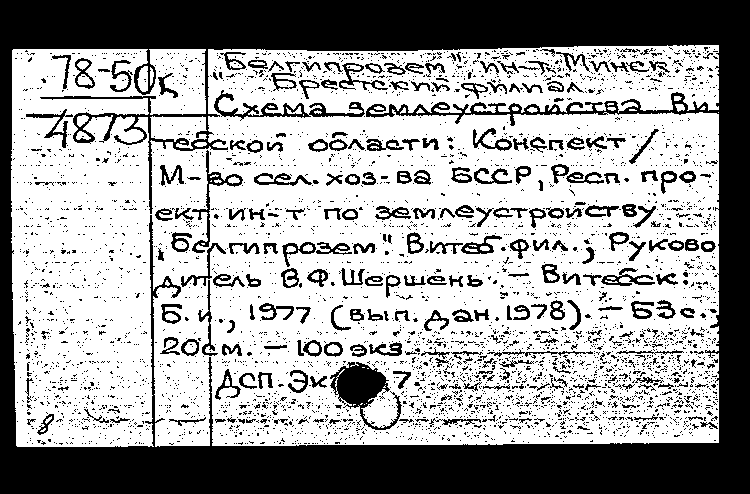 78-50к
4873
"Белгипрозем", ин-т. Минск.
Брестский филиал.
Схема землеустройства Ви-
тебской области: Конспект /
М-во сел. хоз-ва БССР, Респ. про-
ект. ин-т по землеустройству
"Белгипрозем". Витеб. фил.; Руково
дитель В.Ф. Шершень. – Витебск:
Б. и., 1977 (вып. дан. 1978). – 53 с.;
20 см. – 100 экз.
ДСП. Экз 7.
8